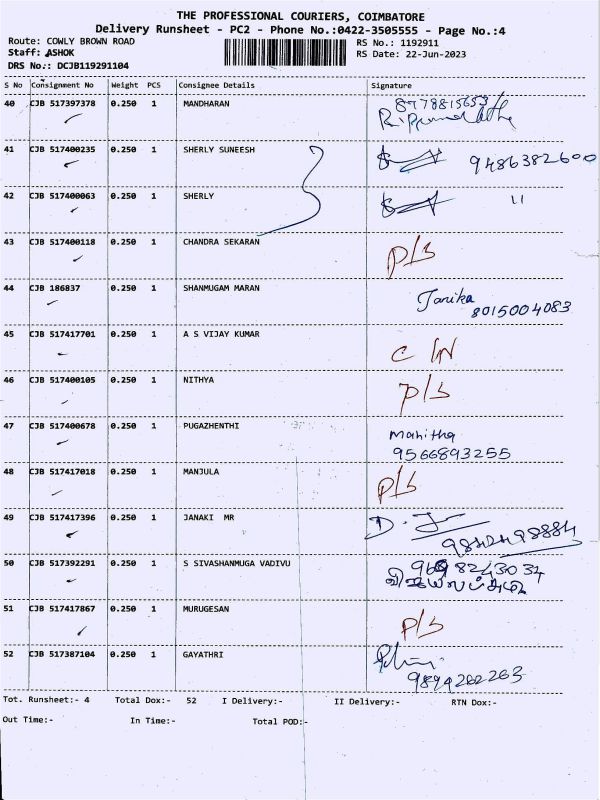 THE PROFESSIONAL COURIERS, COIMBATORE
Delivery Runsheet - PC2 - Phone No.:0422-3505555 - Page No.:4
Route: COWLY BROWN ROAD RS No.: 1192911
Staff: ASHOK RS Date: 22-Jun-2023
DRS No.: DCJB119291104
S No Consignment No Weight PCS Consignee Details Signature
40 CJB 517397378 0.250 1 MANDHARAN 8778815653
41 CJB 517400235 0.250 1 SHERLY SUNEESH 9486382600
42 CJB 517400063 0.250 1 SHERLY "
43 CJB 517400118 0.250 1 CHANDRA SEKARAN P/S
44 CJB 186837 0.250 1 SHANMUGAM MARAN Janika
8015004083
45 CJB 517417701 0.250 1 A S VIJAY KUMAR C/N
46 CJB 517400105 0.250 1 NITHYA P/S
47 CJB 517400678 0.250 1 PUGAZHENTHI Mahitha
9566893255
48 CJB 517417018 0.250 1 MANJULA P/S
49 CJB 517417396 0.250 1 JANAKI MR
50 CJB 517392291 0.250 1 S SIVASHANMUGA VADIVU
51 CJB 517417867 0.250 1 MURUGESAN P/S
52 CJB 517387104 0.250 1 GAYATHRI
9894282263
Tot. Runsheet:- 4 Total Dox:- 52 I Delivery:- II Delivery:- RTN Dox:-
Out Time:- In Time:- Total POD:-